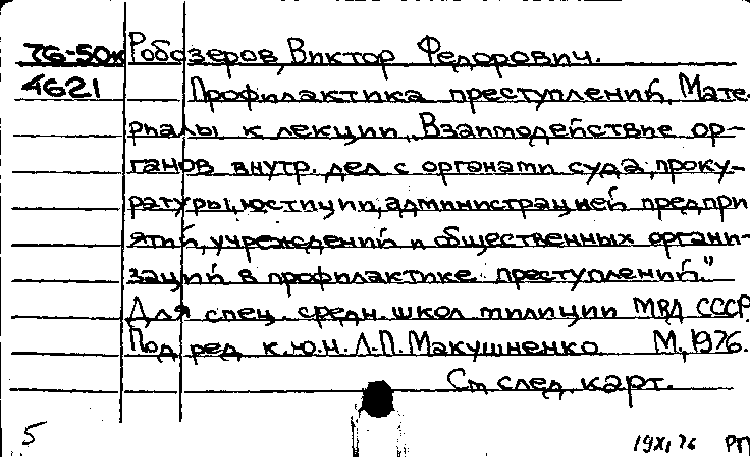 76-50к Робозеров, Виктор Федорович.
4621 Профилактика преступлений. Мате-
риалы к лекции „Взаимодействие ор-
ганов внутр. дел с органами суда, проку-
ратуры, юстиции, администрацией предпри
ятий, учреждений и общественных органи-
заций в профилактике преступлений."
Для спец. средн. школ милиции МВД СССР.
Под ред к.ю.н. Л.П. Макушненко М., 1976.
См след. карт.
5 19XI 76 РП